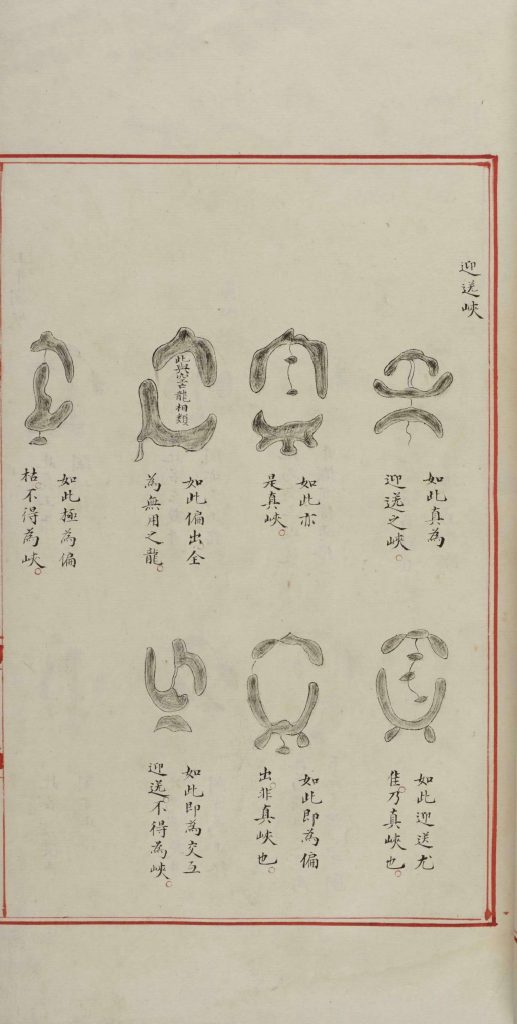 迎送峽
如此真為
迎送之峽。
如此亦
是真峽。
此與空亡龍相類
如此偏出全
為無用之龍。
如此極為偏
枯不得為峽。
如此迎送尤
佳乃真峽也。
如此即為偏
出非真峽也。
如此即為交互
迎送不得為峽。